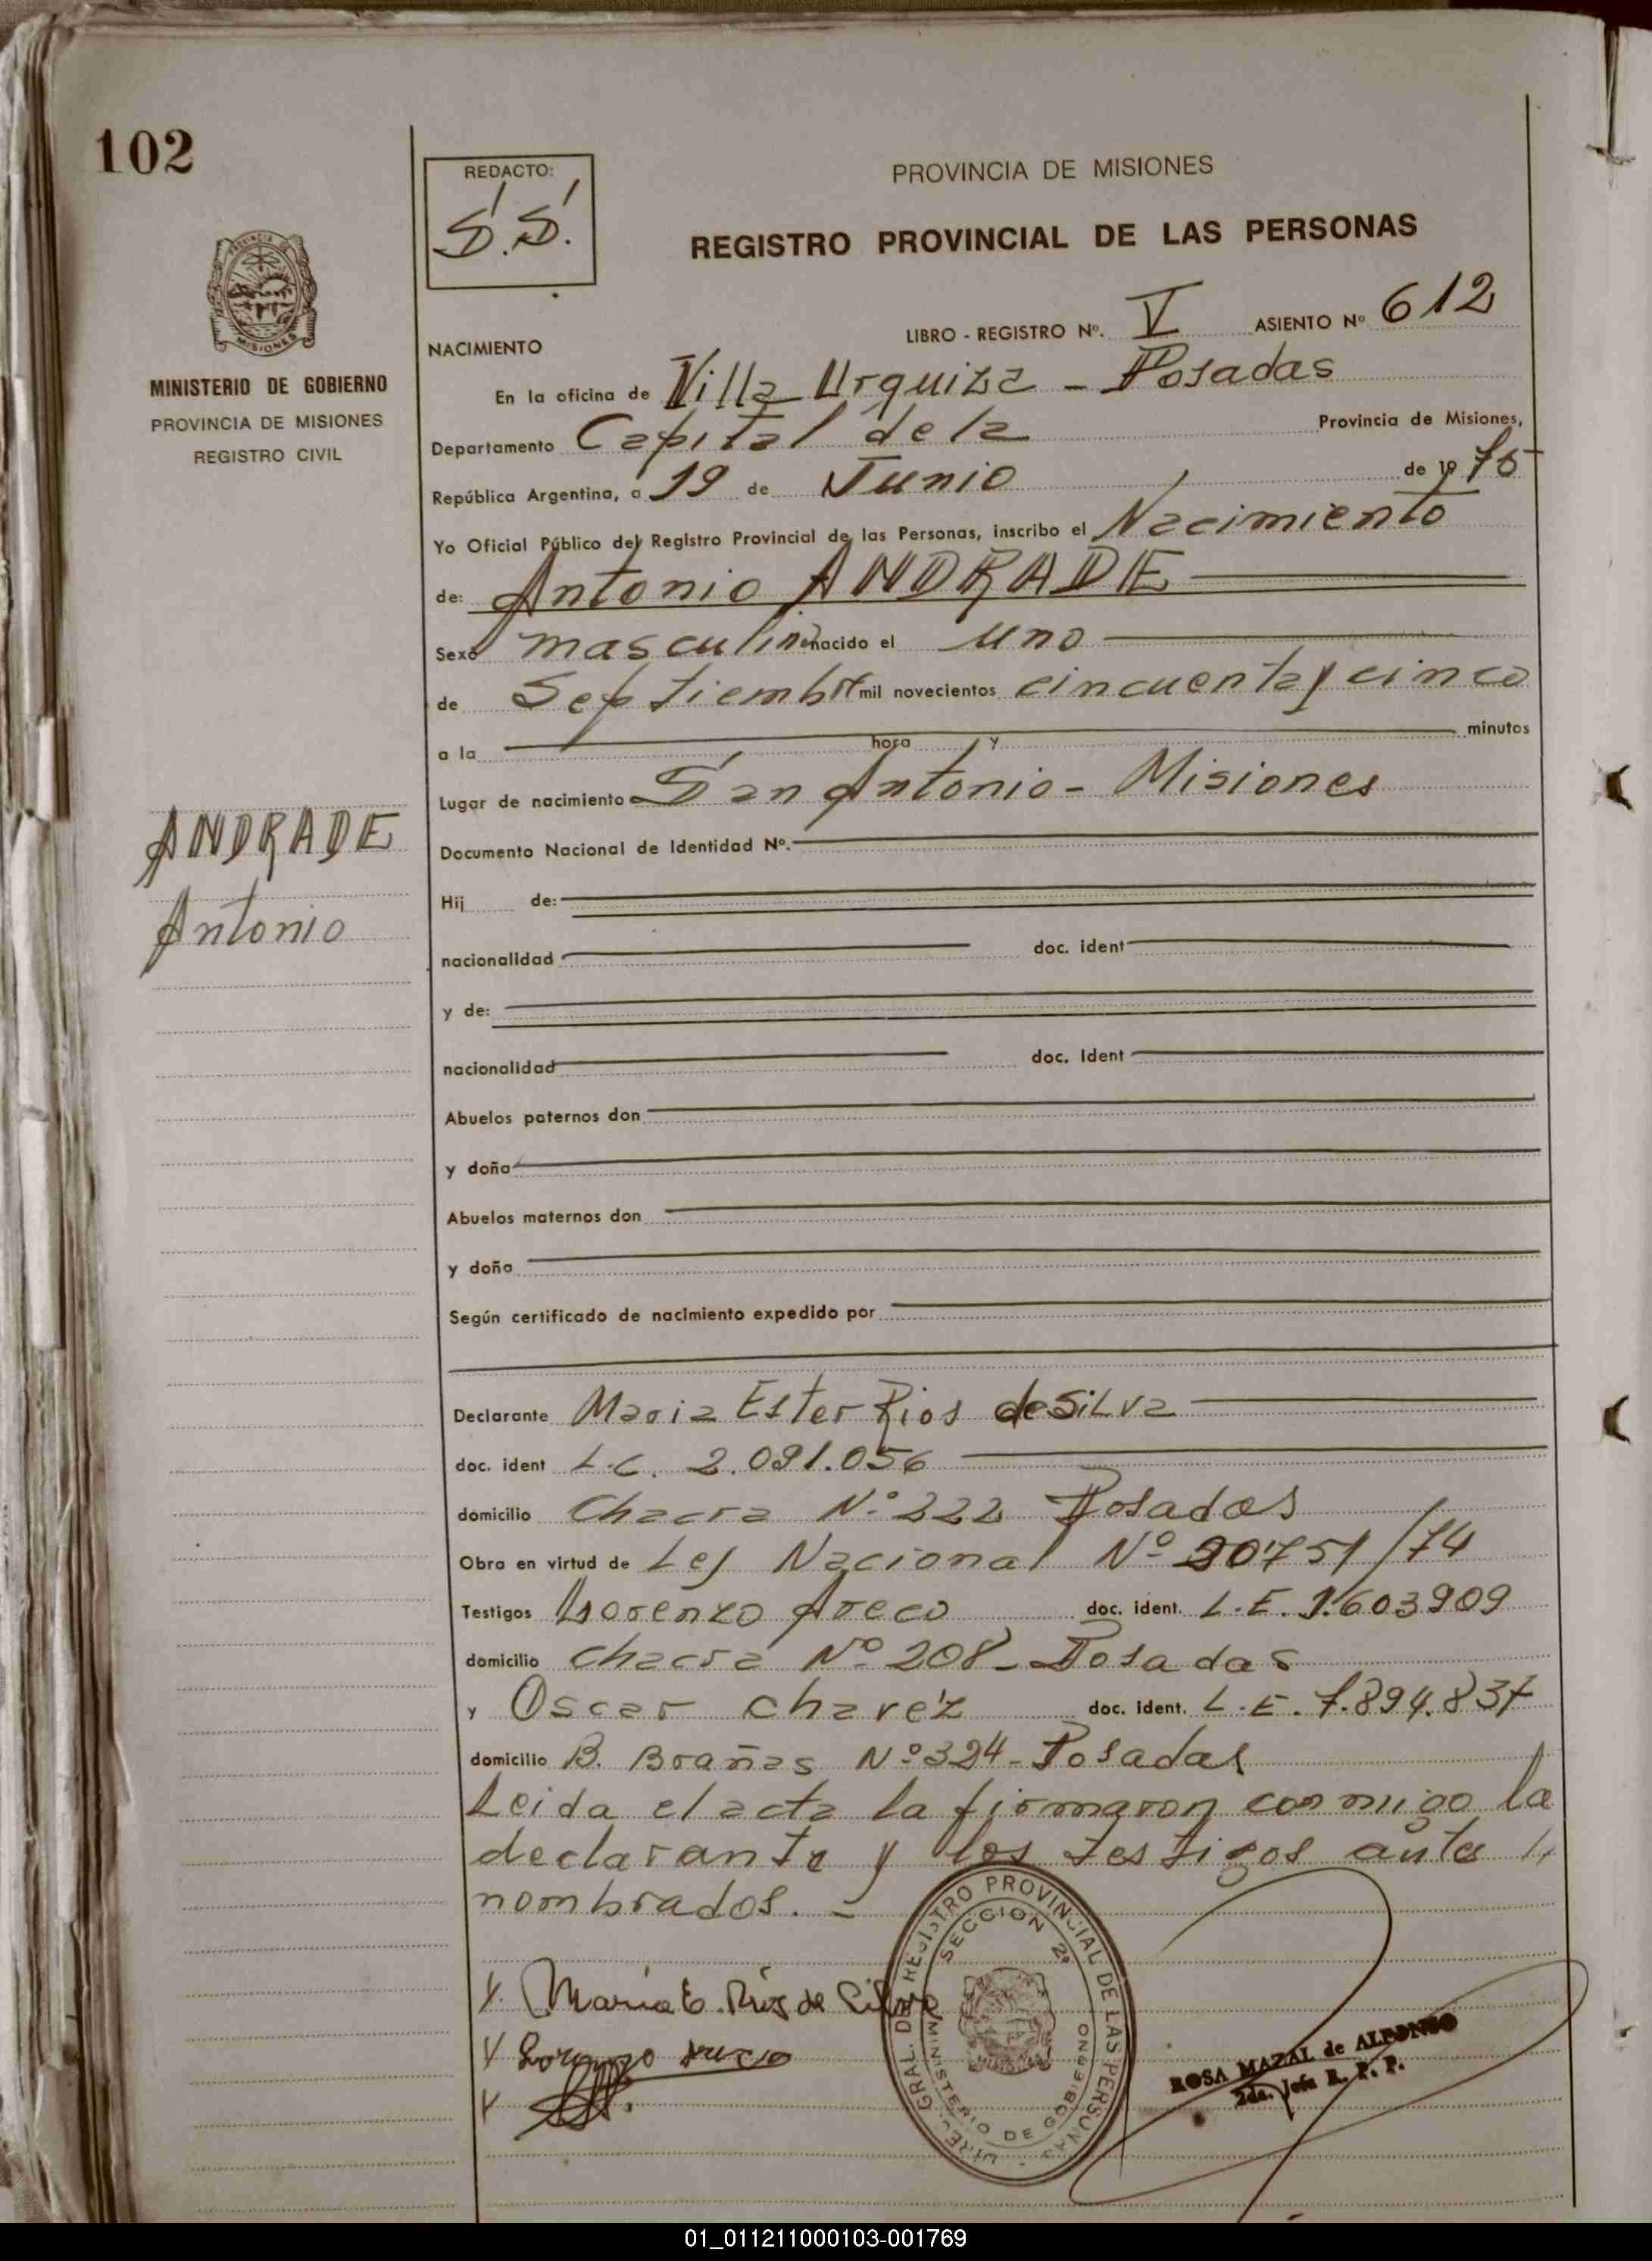 102
REDACTO:
S.S.
PROVINCIA DE MISIONES
REGISTRO PROVINCIAL DE LAS PERSONAS
MINISTERIO DE GOBIERNO
PROVINCIA DE MISIONES
REGISTRO CIVIL
LIBRO - REGISTRO Nº. V ASIENTO Nº 612
NACIMIENTO
En la oficina de Villa Urquiza - Posadas
Departamento Capital de la Provincia de Misiones,
República Argentina, a 19 de Junio de 1975
Yo Oficial Público del Registro Provincial de las Personas, inscribo el Nacimiento
de: Antonio ANDRADE
Sexo masculino nacido el uno
de Septiembre mil novecientos cincuenta y cinco
a la hora y minutos
Lugar de nacimiento San Antonio - Misiones
ANDRADE
Antonio
Documento Nacional de Identidad Nº.
Hij de:
nacionalidad doc. ident
y de:
nacionalidad doc. ident
Abuelos paternos don
y doña
Abuelos maternos don
y doña
Según certificado de nacimiento expedido por
Declarante Maria Ester Rios de Silva
doc. ident L.C. 2.091.056
domicilio Chacra Nº 222 Posadas
Obra en virtud de Ley Nacional Nº 20751/74
Testigos Lorenzo Areco doc. ident. L.E. 1.603909
domicilio chacra Nº 208 - Posadas
y Oscar chavéz doc. ident. L.E. 7.894.837
domicilio B. Brañas Nº 324 - Posadas
Leida el acta la firmaron conmigo la
declarante y los testigos antes
nombrados. -
Maria E. Rios de Silva
Lorenzo Areco
DIREC. GRAL. DEL REGISTRO PROVINCIAL DE LAS PERSONAS
SECCION 2º
MINISTERIO DE GOBIERNO
ROSA MAZAL de ALFONSO
2da. Jefa R. P. P.
01_011211000103-001769